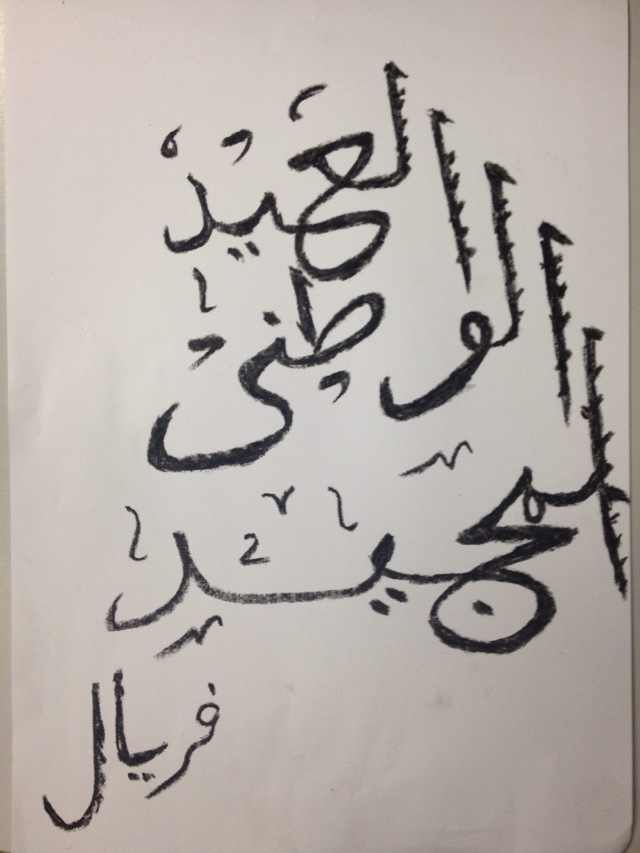 العيد
الوطني
المجيد
فريال